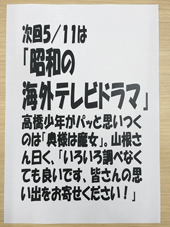 次回5／11は
「昭和の
海外テレビドラマ」
高橋少年がパッと思いつく
のは「奥様は魔女」。山根さ
ん曰く、「いろいろ調べなく
ても良いです、皆さんの思
い出をお寄せください！」